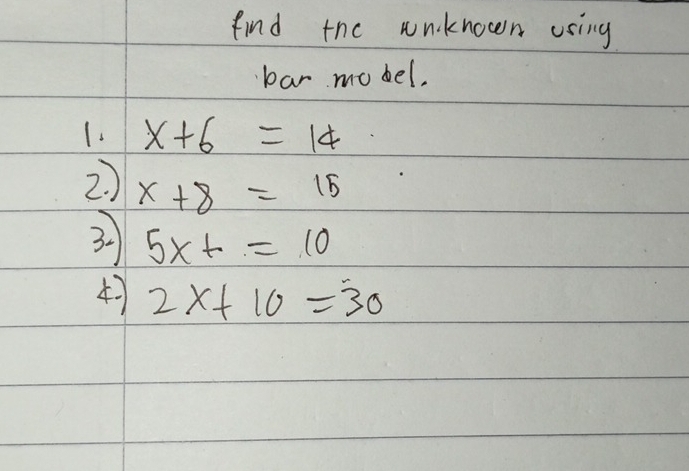 find the unknown using
bar model.
1. x+6 = 14
2.) x+8 = 15
3.) 5x+ = 10
4.) 2x+10 = 30